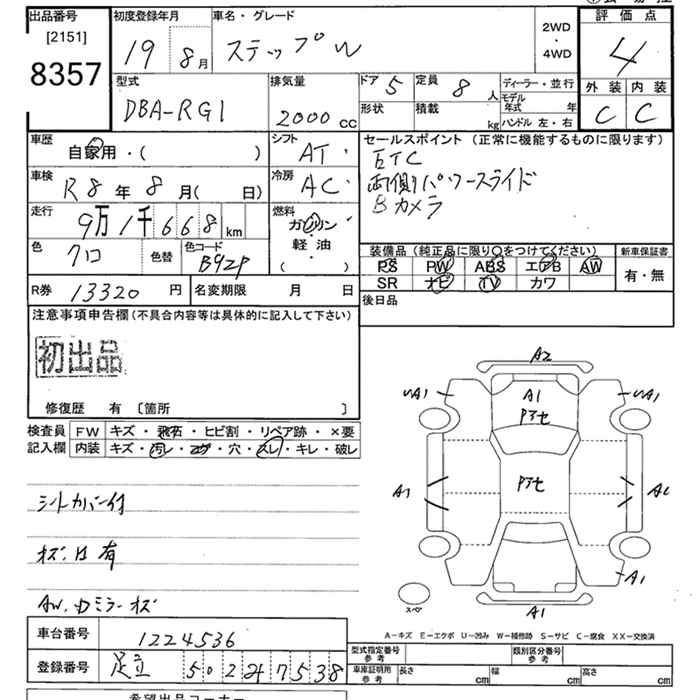 出品番号
[2151]
8357
初度登録年月
19 8月
車名・グレード
ステップW
2WD
・
4WD
評価点
4
外装 内装
C C
型式
DBA-RG1
排気量
2000 CC
ドア 5
定員 8 人
形状
積載 kg
ディーラー・並行
モデル年式 年
ハンドル 左・右
車歴
自家用・( )
シフト
AT
車検
R8年8月( 日)
冷房
AC
走行
9万1千668km
燃料
ガソリン
軽・油
( )
色
クロ
色替
色コード
B92P
R券 13320 円
名変期限 月 日
セールスポイント(正常に機能するものに限ります)
ETC
両側パワースライド
Bカメラ
装備品(純正品に限り〇をつけてください)
PS PW ABS エアB AW
SR ナビ TV カワ
新車保証書
有・無
後日品
注意事項申告欄(不具合内容等は具体的に記入して下さい)
初出品
修復歴 有 〔箇所 〕
検査員記入欄
FW キズ・飛石・ヒビ割・リペア跡・×要
内装 キズ・汚レ・コゲ・穴・スレ・キレ・破レ
シートカバー付
AW.Dミラーキズ
A2
A1
Pアセ
Pアセ
A1
A1
A1
スペ
A-キズ E-エクボ U-凹み W-補修跡 S-サビ C-腐食 XX-交換済
車台番号 1224536
登録番号 足立 502 7538
型式指定番号 参考
類別区分番号 参考
車庫証明用 参考
長さ cm
幅 cm
高さ cm
希望出品コーナー